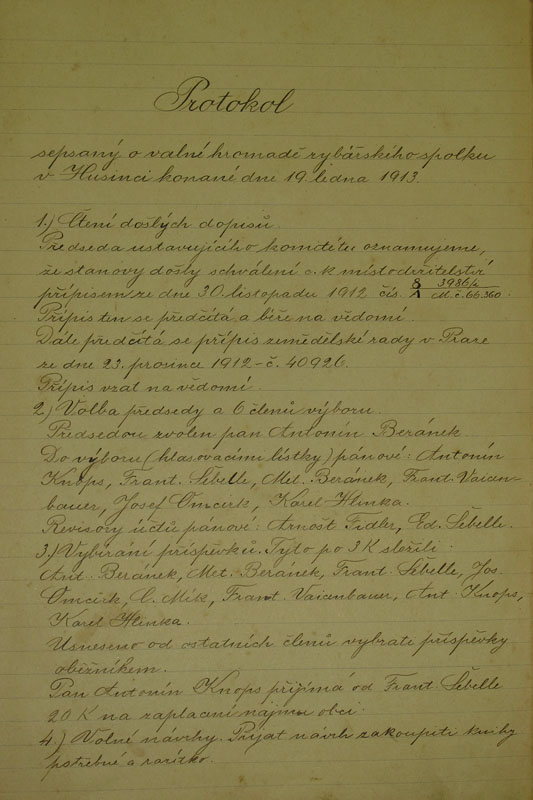 Protokol
sepsaný o valné hromadě rybářského spolku
v Husinci konané dne 19. ledna 1913.
1.) Čtení došlých dopisů
Předseda ustavujícího komitétu oznamujeme,
že stanovy došly schválení c. k. místodržitelství
přípisem ze dne 30. listopadu 1912 čís. 8/A 3986/4 M.č. 66.360.
Přípis ten se předčítá a béře na vědomí.
Dále předčítá se přípis zemědělské rady v Praze
ze dne 23. prosince 1912 - č. 40926.
Přípis vzat na vědomí
2.) Volba předsedy a 6 členů výboru.
Předsedou zvolen pan Antonín Beránek.
Do výboru (hlasovacími lístky) pánové: Antonín
Knops, Frant. Šébelle, Met. Beránek, Frant. Vaican-
bauer, Josef Omcirk, Karel Hlinka.
Revisory účtů pánové: Arnošt Fidler, Ed. Šébelle.
3.) Vybírání příspěvků. Tyto po 3 K složili:
Ant. Beránek, Met. Beránek, Frant. Šébelle, Jos.
Omcirk, C. Mik, Frant. Vaicanbauer, Ant. Knops,
Karel Hlinka.
Usneseno od ostatních členů vybrati příspěvky
oběžníkem.
Pan Antonín Knops přijímá od Frant. Šébelle
20 K na zaplacení nájmu obci:
4.) Volné návrhy. Přijat návrh zakoupiti knihy
potřebné a razítko.